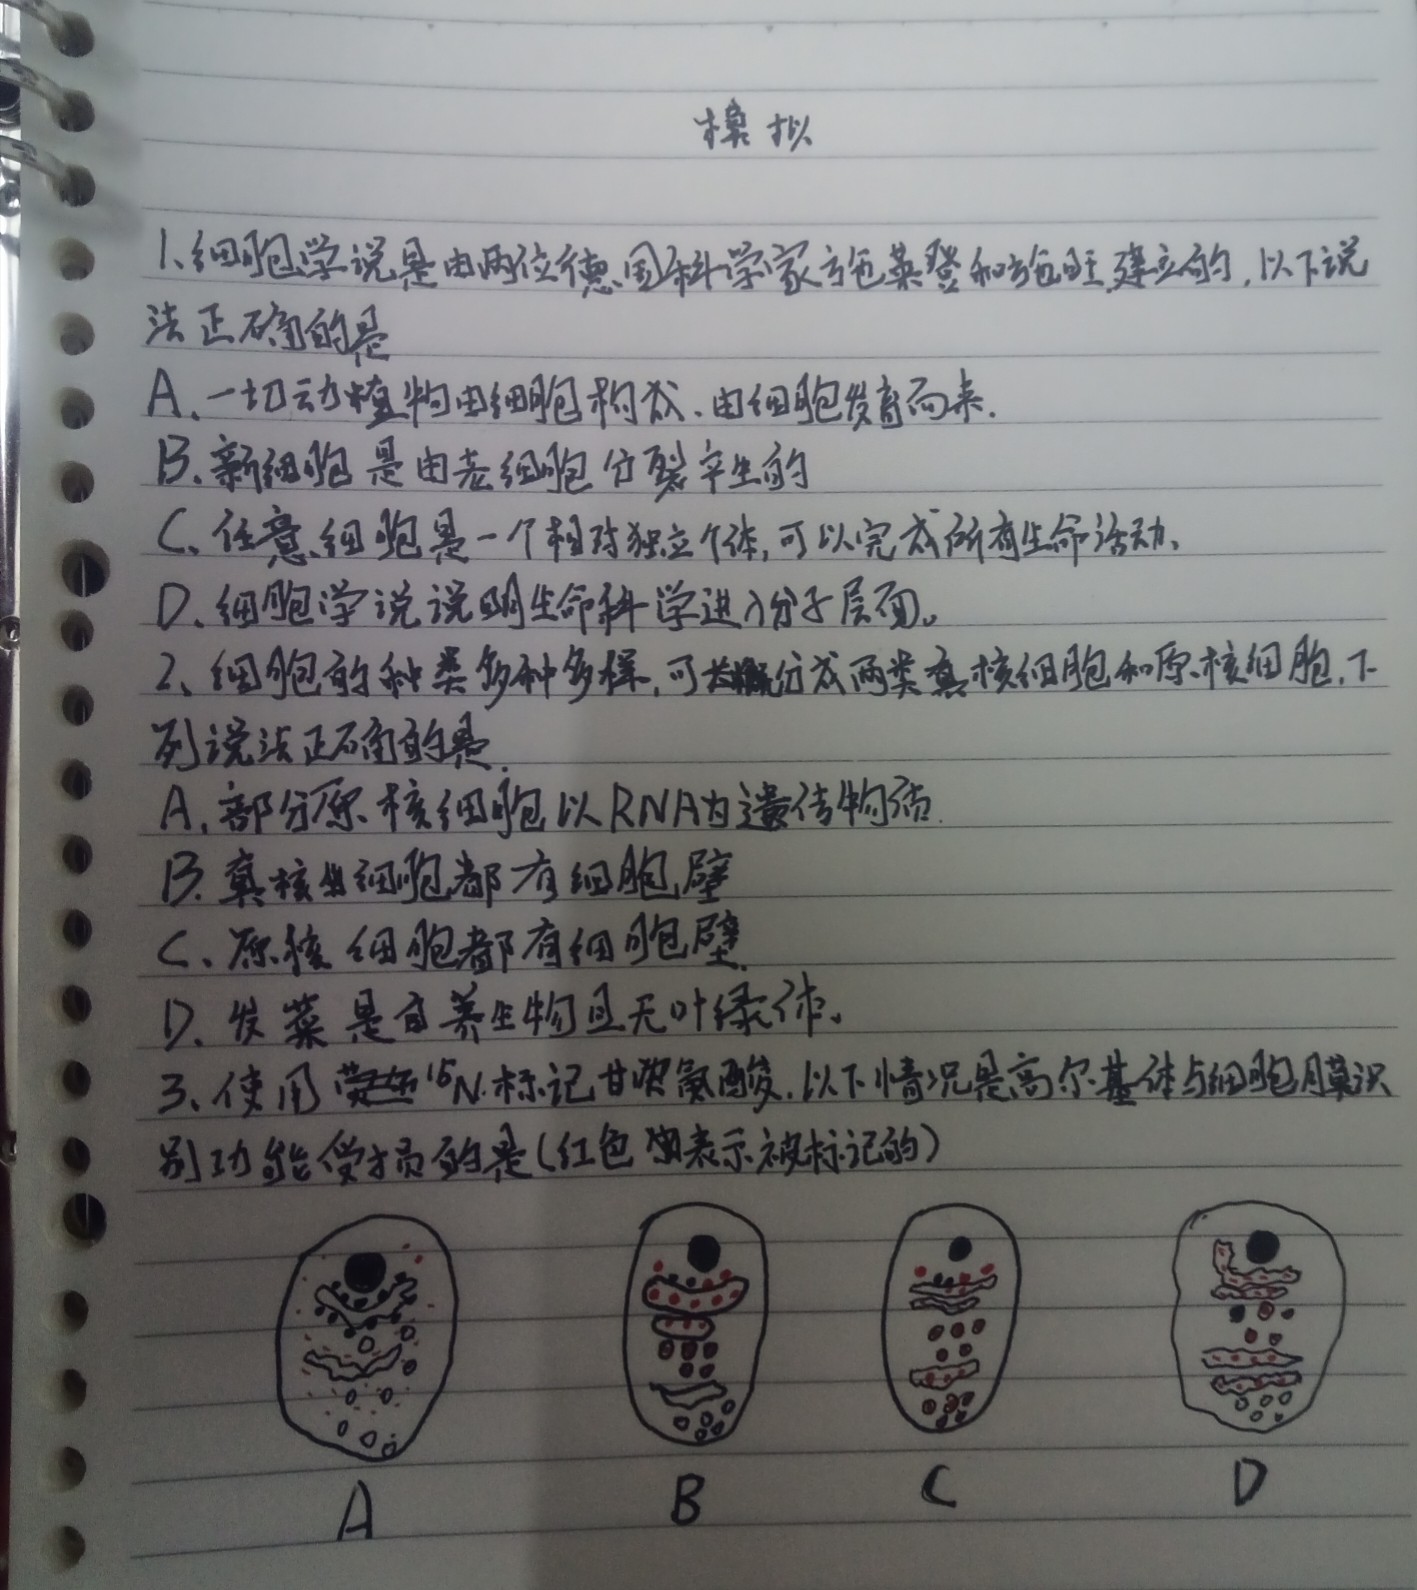 模拟
1、细胞学说是由两位德国科学家施莱登和施旺建立的，以下说
法正确的是
A、一切动植物由细胞构成、由细胞发育而来.
B、新细胞是由老细胞分裂产生的
C、任意细胞是一个相对独立个体，可以完成所有生命活动、
D、细胞学说说明生命科学进入分子层面。
2、细胞的种类多种多样，可大概分成两类真核细胞和原核细胞，下
列说法正确的是
A、部分原核细胞以RNA为遗传物质.
B、真核细胞都有细胞壁
C、原核细胞都有细胞壁
D、发菜是自养生物且无叶绿体。
3、使用15N标记甘氨酸，以下情况是高尔基体与细胞膜识
别功能受损的是（红色表示被标记的）
A
B
C
D